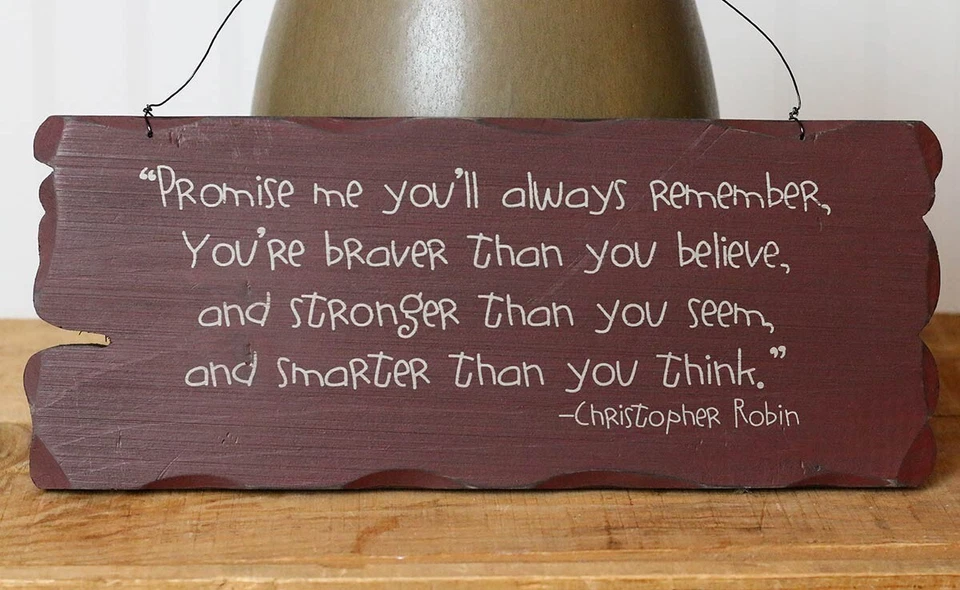 “Promise me you’ll always remember,
You’re braver than you believe,
and stronger than you seem,
and smarter than you think.”
-Christopher Robin